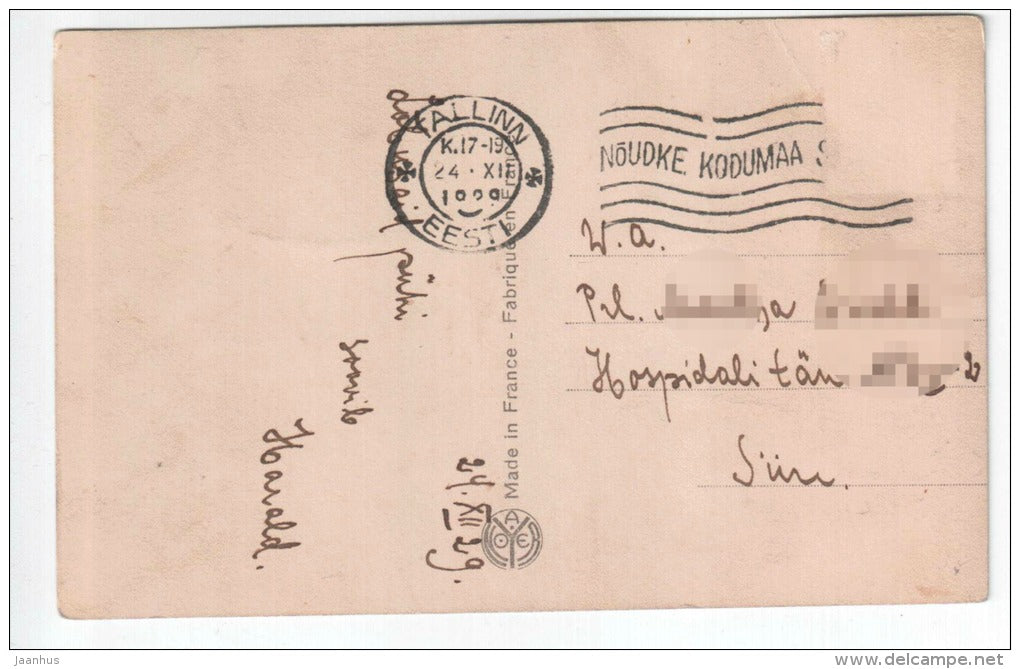 TALLINN
K.17-19
24. XII
1929
EESTI
NÕUDKE KODUMAA S
W. a.
Prl.
Hospidali tän
Siin.
pühi
soovib
Harald.
24. XII 29.
Made in France - Fabriqué en France
jaanhus
www.delcampe.net